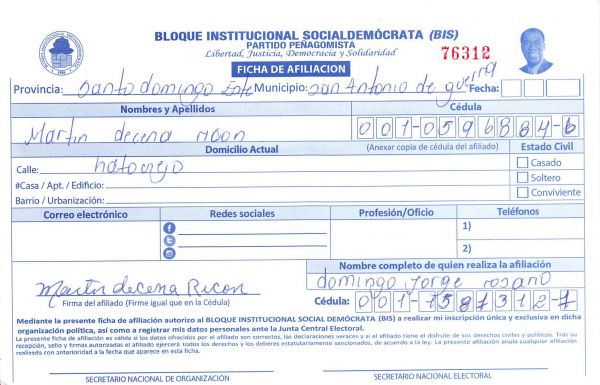 BLOQUE INSTITUCIONAL SOCIALDEMÓCRATA (BIS)
PARTIDO PEÑAGOMISTA
Libertad, Justicia, Democracia y Solidaridad
76312
FICHA DE AFILIACION
Provincia: Santo domingo Este Municipio: San Antonio de guerra Fecha:
Nombres y Apellidos Cédula
Martin decena Ricon 001-0596884-6
Domicilio Actual (Anexar copia de cédula del afiliado) Estado Civil
Calle: hatoviejo Casado
#Casa / Apt. / Edificio: Soltero
Barrio / Urbanización: Conviviente
Correo electrónico Redes sociales Profesión/Oficio Teléfonos
1)
2)
Nombre completo de quien realiza la afiliación
domingo Jorge rosario
Martin decena Ricon
Firma del afiliado (Firme igual que en la Cédula) Cédula: 001-1587312-7
Mediante la presente ficha de afiliación autorizo al BLOQUE INSTITUCIONAL SOCIAL DEMÓCRATA (BIS) a realizar mi inscripción única y exclusiva en dicha
organización política, así como a registrar mis datos personales ante la Junta Central Electoral.
La presente ficha de afiliación es válida si los datos ofrecidos por el afiliado son correctos, las declaraciones veraces y si el afiliado tiene el disfrute de sus derechos civiles y políticos. Tras su
recepción, sello y firmas autorizadas el afiliado ejercerá todos los derechos y los deberes estatutariamente sancionados, de acuerdo a la ley. La presente afiliación anula cualquier afiliación
realizada con anterioridad a la fecha que aparece en esta ficha.
SECRETARIO NACIONAL DE ORGANIZACIÓN SECRETARIO NACIONAL ELECTORAL